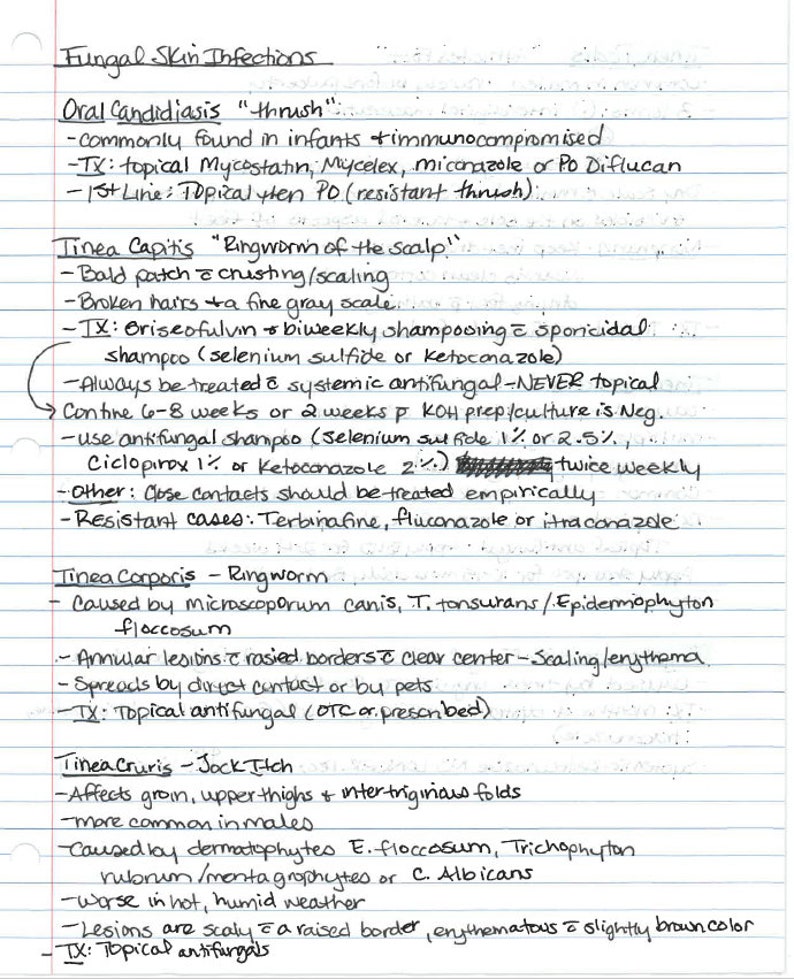 Fungal Skin Infections
Oral Candidiasis "thrush":
- commonly found in infants + immunocompromised
- TX: topical Mycostatin, Mycelex, miconazole or PO Diflucan
- 1st Line: Topical then PO (resistant thrush)
Tinea Capitis "Ringworm of the scalp"
- Bald patch c̄ crusting/scaling
- Broken hairs + a fine gray scale
- TX: Griseofulvin + biweekly shampooing c̄ sporicidal
shampoo (selenium sulfide or ketoconazole)
- Always be treated c̄ systemic antifungal - NEVER topical
Contine 6-8 weeks or 2 weeks p̄ KOH prep/culture is Neg.
- use antifungal shampoo (selenium sulfide 1% or 2.5%,
Ciclopirox 1% or ketoconazole 2%) twice weekly
- Other: Close contacts should be treated empirically
- Resistant cases: Terbinafine, fluconazole or itraconazole
Tinea Corporis - Ringworm
- Caused by microscoporum canis, T. tonsurans/Epidermophyton
floccosum
- Annular lesions c̄ rasied borders c̄ clear center - Scaling/erythema
- Spreads by direct contact or by pets
- TX: Topical antifungal (OTC or prescribed)
Tinea Cruris - Jock Itch
- Affects groin, upper thighs + intertriginous folds
- more common in males
- Caused by dermatophytes E. floccosum, Trichophyton
rubrum/mentagrophytes or C. Albicans
- Worse in hot, humid weather
- Lesions are scaly c̄ a raised border, erythematous c̄ slightly brown color
- TX: Topical antifungals